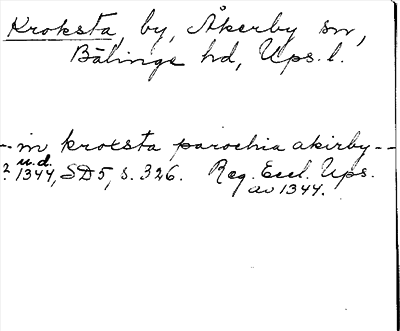 Kroksta, by, Åkerby sn,
Bälinge hd, Ups. l.
-- in krocsta parochia akirby --
u.d.
? 1344, SD5, s. 326. Reg. Eccl. Ups.
av 1344.